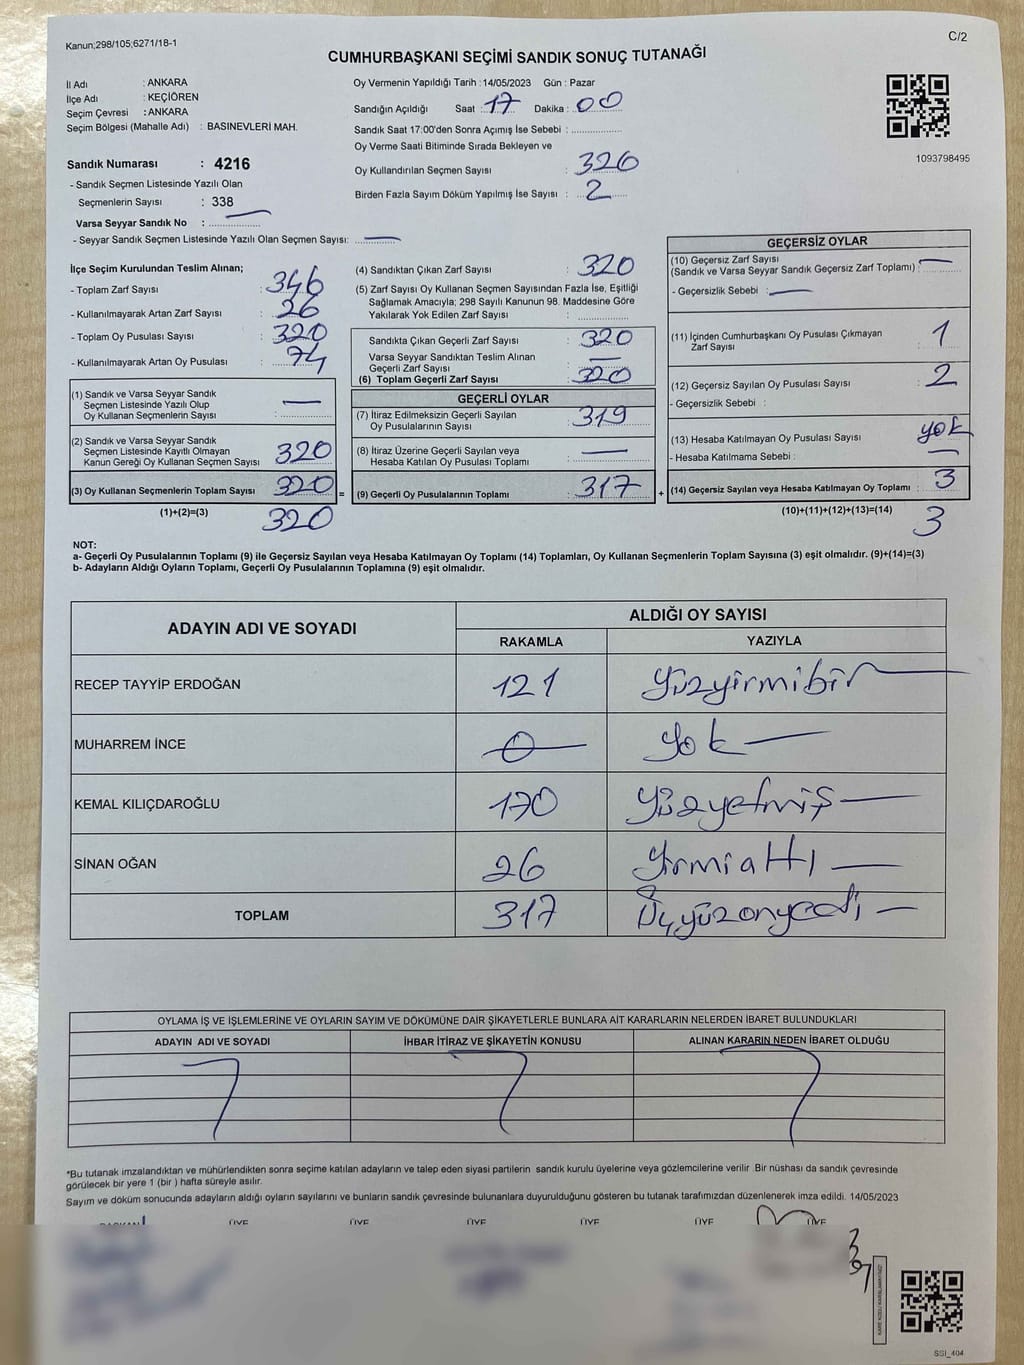 Kanun;298/105;6271/18-1
C/2
CUMHURBAŞKANI SEÇİMİ SANDIK SONUÇ TUTANAĞI
İl Adı : ANKARA
İlçe Adı : KEÇİÖREN
Seçim Çevresi : ANKARA
Seçim Bölgesi (Mahalle Adı) : BASINEVLERİ MAH.
Sandık Numarası : 4216
- Sandık Seçmen Listesinde Yazılı Olan
Seçmenlerin Sayısı : 338
Varsa Seyyar Sandık No :
- Seyyar Sandık Seçmen Listesinde Yazılı Olan Seçmen Sayısı:
Oy Vermenin Yapıldığı Tarih : 14/05/2023 Gün : Pazar
Sandığın Açıldığı Saat : 17 Dakika : 00
Sandık Saat 17:00'den Sonra Açımış İse Sebebi :
Oy Verme Saati Bitiminde Sırada Bekleyen ve
Oy Kullandırılan Seçmen Sayısı : 326
Birden Fazla Sayım Döküm Yapılmış İse Sayısı : 2
1093798495
İlçe Seçim Kurulundan Teslim Alınan;
- Toplam Zarf Sayısı : 346
- Kullanılmayarak Artan Zarf Sayısı : 26
- Toplam Oy Pusulası Sayısı : 320
- Kullanılmayarak Artan Oy Pusulası : 74
(1) Sandık ve Varsa Seyyar Sandık
Seçmen Listesinde Yazılı Olup
Oy Kullanan Seçmenlerin Sayısı :
(2) Sandık ve Varsa Seyyar Sandık
Seçmen Listesinde Kayıtlı Olmayan
Kanun Gereği Oy Kullanan Seçmen Sayısı : 320
(3) Oy Kullanan Seçmenlerin Toplam Sayısı : 320 =
(1)+(2)=(3)
320
(4) Sandıktan Çıkan Zarf Sayısı : 320
(5) Zarf Sayısı Oy Kullanan Seçmen Sayısından Fazla İse, Eşitliği
Sağlamak Amacıyla; 298 Sayılı Kanunun 98. Maddesine Göre
Yakılarak Yok Edilen Zarf Sayısı :
Sandıkta Çıkan Geçerli Zarf Sayısı : 320
Varsa Seyyar Sandıktan Teslim Alınan
Geçerli Zarf Sayısı :
(6) Toplam Geçerli Zarf Sayısı : 320
GEÇERLİ OYLAR
(7) İtiraz Edilmeksizin Geçerli Sayılan
Oy Pusulalarının Sayısı : 319
(8) İtiraz Üzerine Geçerli Sayılan veya
Hesaba Katılan Oy Pusulası Toplamı :
(9) Geçerli Oy Pusulalarının Toplamı : 317 +
GEÇERSİZ OYLAR
(10) Geçersiz Zarf Sayısı
(Sandık ve Varsa Seyyar Sandık Geçersiz Zarf Toplamı) :
- Geçersizlik Sebebi :
(11) İçinden Cumhurbaşkanı Oy Pusulası Çıkmayan
Zarf Sayısı : 1
(12) Geçersiz Sayılan Oy Pusulası Sayısı : 2
- Geçersizlik Sebebi :
(13) Hesaba Katılmayan Oy Pusulası Sayısı : yok
- Hesaba Katılmama Sebebi :
(14) Geçersiz Sayılan veya Hesaba Katılmayan Oy Toplamı : 3
(10)+(11)+(12)+(13)=(14)
3
NOT:
a- Geçerli Oy Pusulalarının Toplamı (9) ile Geçersiz Sayılan veya Hesaba Katılmayan Oy Toplamı (14) Toplamları, Oy Kullanan Seçmenlerin Toplam Sayısına (3) eşit olmalıdır. (9)+(14)=(3)
b- Adayların Aldığı Oyların Toplamı, Geçerli Oy Pusulalarının Toplamına (9) eşit olmalıdır.
ADAYIN ADI VE SOYADI
ALDIĞI OY SAYISI
RAKAMLA YAZIYLA
RECEP TAYYİP ERDOĞAN 121 Yüzyirmibir
MUHARREM İNCE 0 Yok
KEMAL KILIÇDAROĞLU 170 Yüzyetmiş
SİNAN OĞAN 26 Yirmialtı
TOPLAM 317 Üçyüzonyedi
OYLAMA İŞ VE İŞLEMLERİNE VE OYLARIN SAYIM VE DÖKÜMÜNE DAİR ŞİKAYETLERLE BUNLARA AİT KARARLARIN NELERDEN İBARET BULUNDUKLARI
ADAYIN ADI VE SOYADI İHBAR İTİRAZ VE ŞİKAYETİN KONUSU ALINAN KARARIN NEDEN İBARET OLDUĞU
*Bu tutanak imzalandıktan ve mühürlendikten sonra seçime katılan adayların ve talep eden siyasi partilerin sandık kurulu üyelerine veya gözlemcilerine verilir .Bir nüshası da sandık çevresinde
görülecek bir yere 1 (bir ) hafta süreyle asılır.
Sayım ve döküm sonucunda adayların aldığı oyların sayılarını ve bunların sandık çevresinde bulunanlara duyurulduğunu gösteren bu tutanak tarafımızdan düzenlenerek imza edildi. 14/05/2023
BAŞKAN ÜYE ÜYE ÜYE ÜYE ÜYE ÜYE
KARE KODU KARALAMAYINIZ!
SSİ_404